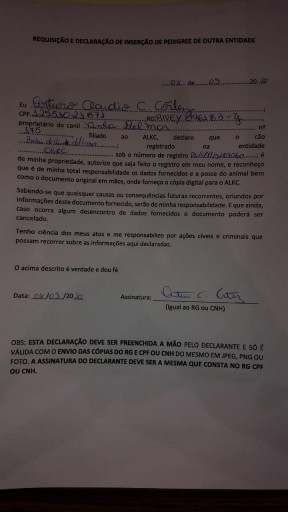 REQUISIÇÃO E DECLARAÇÃO DE INSERÇÃO DE PEDIGREE DE OUTRA ENTIDADE
de 03 20
Eu Arturo Claudio C.
CPF RG
proprietário do canil Del Mar nº
175 filiado ao ALKC, declara que o cão
registrado na entidade
sob o número de registro é
de minha propriedade, autorizo que seja feito o registro em meu nome, e reconheço
que é de minha total responsabilidade os dados fornecidos e a posse do animal bem
como o documento original em mãos, onde forneço a cópia digital para o ALKC.
Sabendo-se que quaisquer causas ou consequências futuras recorrentes, oriundos por
informações deste documento fornecido, serão de minha responsabilidade. E que ainda,
caso ocorra algum desencontro de dados fornecidos o documento poderá ser
cancelado.
Tenho ciência dos meus atos e me responsabilizo por ações cíveis e criminais que
possam recorrer sobre as informações aqui declaradas.
O acima descrito é verdade e dou fé
Data: /03/20 Assinatura:
(Igual ao RG ou CNH)
OBS: ESTA DECLARAÇÃO DEVE SER PREENCHIDA A MÃO PELO DECLARANTE E SÓ É
VÁLIDA COM O ENVIO DAS CÓPIAS DO RG E CPF OU CNH DO MESMO EM JPEG, PNG OU
FOTO. A ASSINATURA DO DECLARANTE DEVE SER A MESMA QUE CONSTA NO RG CPF
OU CNH.